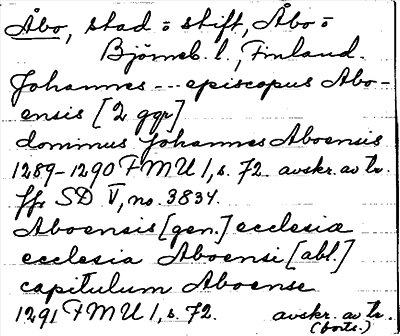 Åbo, stad o stift, Åbo o
Björneb. l., Finland.
Johannes --- episcopus Abo-
ensis [2 ggr]
dominus Johannes Aboensis
1289-1290 FMU 1, s. 72 avskr. av tr.
ffr SD V, no. 3834.
Aboensis [gen.] ecclesia
ecclesia Aboensi [abl.]
capitulum Aboense
1291 FMU 1, s. 72. avskr. av tr.
(forts.)